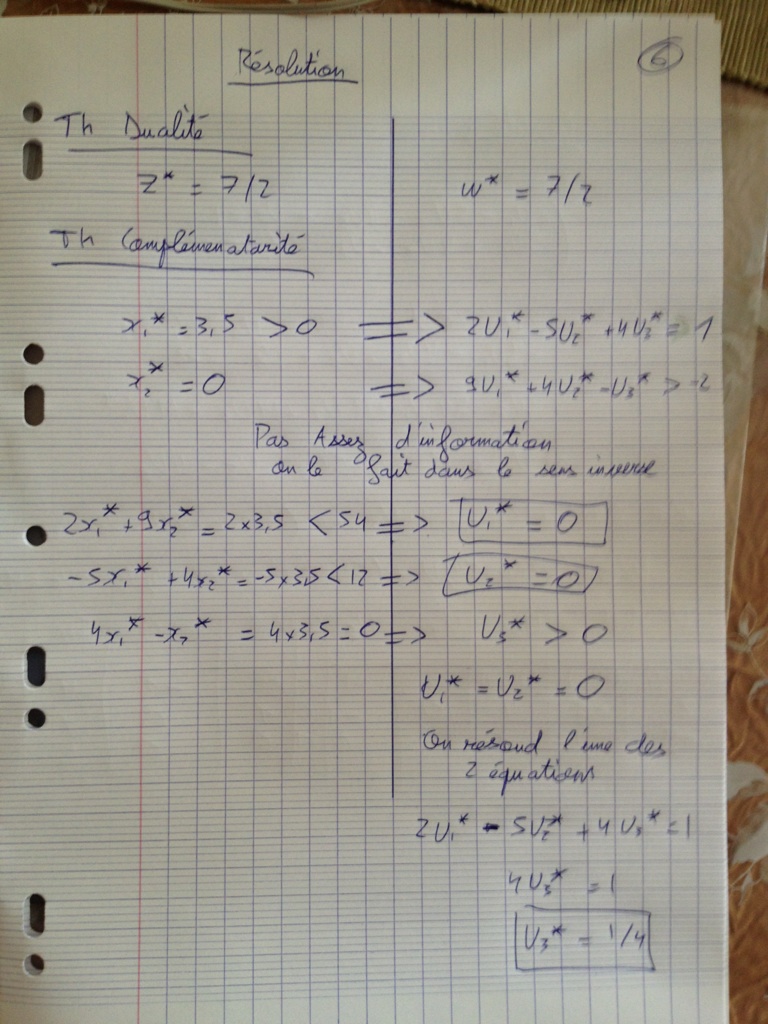 Résolution
6
Th Dualité
Z* = 7/2
w* = 7/2
Th Complémenatarité
x₁* = 3,5 > 0 => 2U₁* - 5U₂* + 4U₃* = 1
x₂* = 0 => 9U₁* + 4U₂* - U₃* > -2
Pas Assez d'information
on le fait dans le sens inverse
2x₁* + 9x₂* = 2x3,5 < 54 => U₁* = 0
-5x₁* + 4x₂* = -5x3,5 < 12 => U₂* = 0
4x₁* - x₂* = 4x3,5 = 0 => U₃* > 0
U₁* = U₂* = 0
On résoud l'une des
2 équations
2U₁* - 5U₂* + 4U₃* = 1
4U₃* = 1
U₃* = 1/4